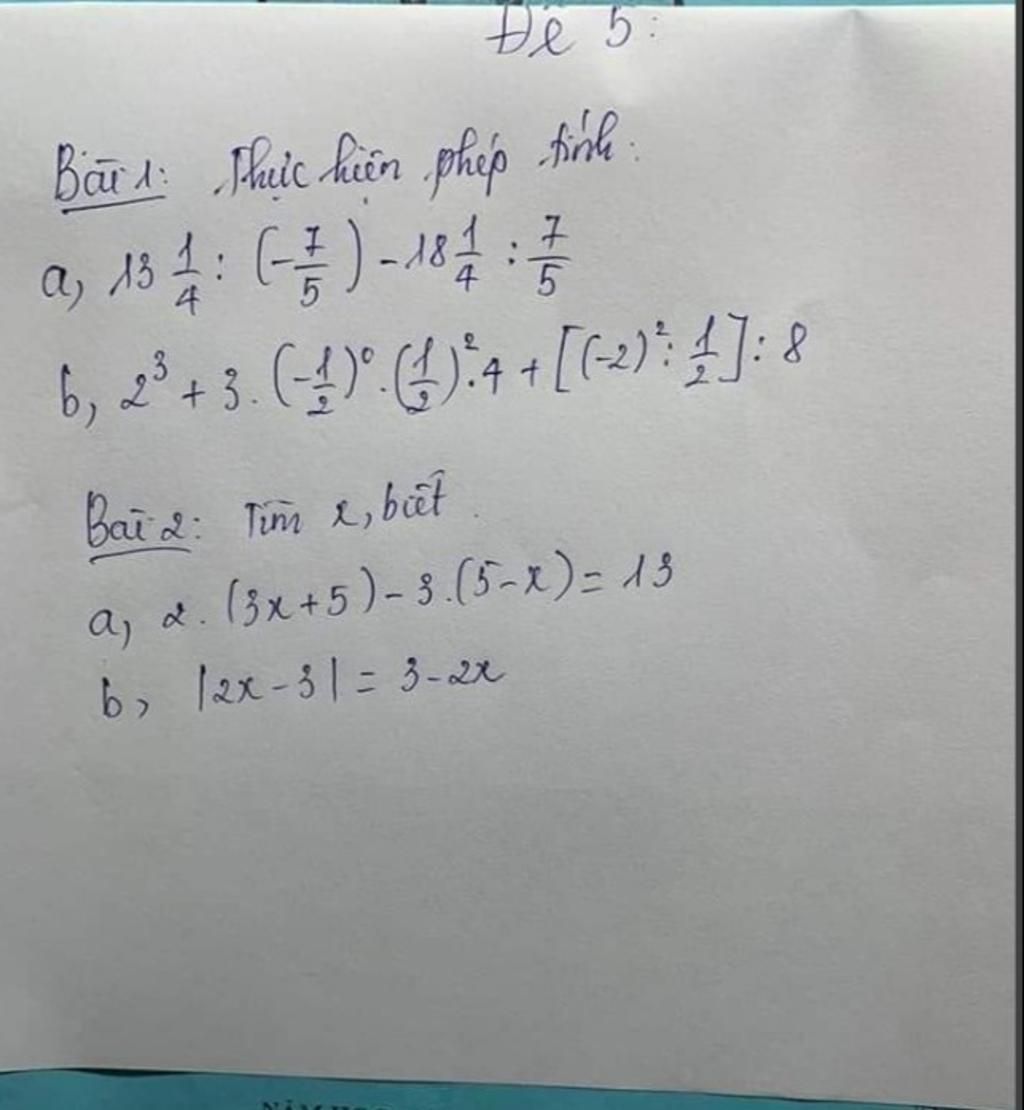 Đề 5:
Bài 1: Thực hiện phép tính:
a, 13 1/4 : (-7/5) - 18 1/4 : 7/5
b, 2³ + 3. (-1/2)⁰. (1/2)².4 + [(-2)² : 1/2] : 8
Bài 2: Tìm x, biết.
a, 2. (3x+5) - 3.(5-x) = 13
b, |2x - 3| = 3 - 2x